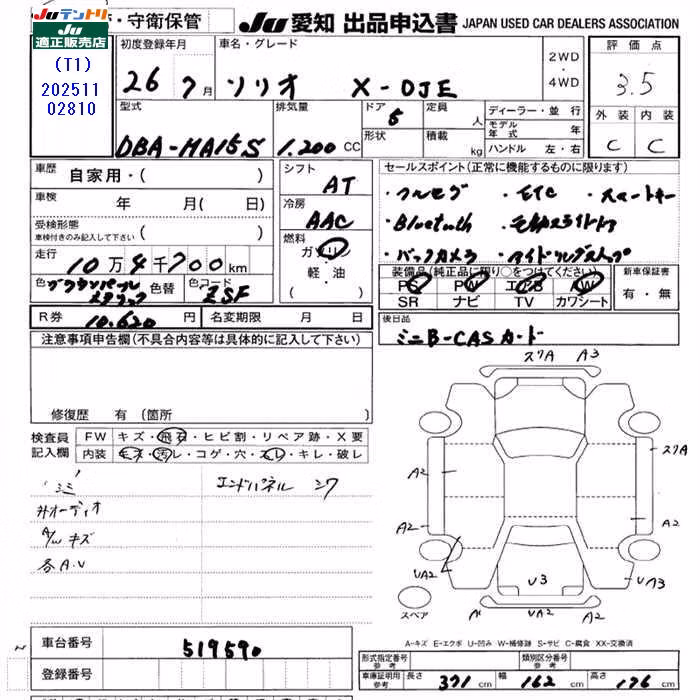 Juテントリ
適正販売店
・守衛保管
Ju 愛知 出品申込書 JAPAN USED CAR DEALERS ASSOCIATION
(T1)
202511
02810
初度登録年月
26 7月
車名・グレード
ソリオ X-DJE
2WD
・
4WD
評価点
3.5
型式
DBA-MA15S
排気量
1.200 CC
ドア
5
形状
定員
人
積載
kg
ディーラー・並行
モデル年式 年
ハンドル 左・右
外装 内装
C C
車歴 自家用・( )
車検 年 月( 日)
受検形態
車検付きのみ記入して下さい ( )
走行 10万4千700km
色 ブラウンパール メタリック 色替 色コード ZSF
シフト AT
冷房 AAC
燃料
ガソリン
軽・油
( )
セールスポイント(正常に機能するものに限ります)
・フルセグ ・ETC ・スマートキー
・Bluetooth
・バックカメラ ・アイドリングストップ
装備品(純正品に限り○をつけてください)
PS PW エアB AW
SR ナビ TV カワシート
新車保証書
有・無
R券 10.620円 名変期限 月 日
後日品
ミニB-CASカード
注意事項申告欄(不具合内容等は具体的に記入して下さい)
修復歴 有(箇所 )
検査員
記入欄
FW キズ・飛石・ヒビ割・リペア跡・X要
内装 キズ・汚レ・コゲ・穴・スレ・キレ・破レ
"ミミ" エンドパネル シワ
外オーディオ
A/W キズ
各A.U
スリA A3
スリA
A2
A2
A2
UA2
U3
UA3
スペア
UA2
A2
A-キズ E-エクボ U-凹み W-補修跡 S-サビ C-腐食 XX-交換済
車台番号 519590
登録番号
形式指定番号 参考
類別区分番号 参考
車庫証明用 参考 長さ 371 幅 162 高さ 176